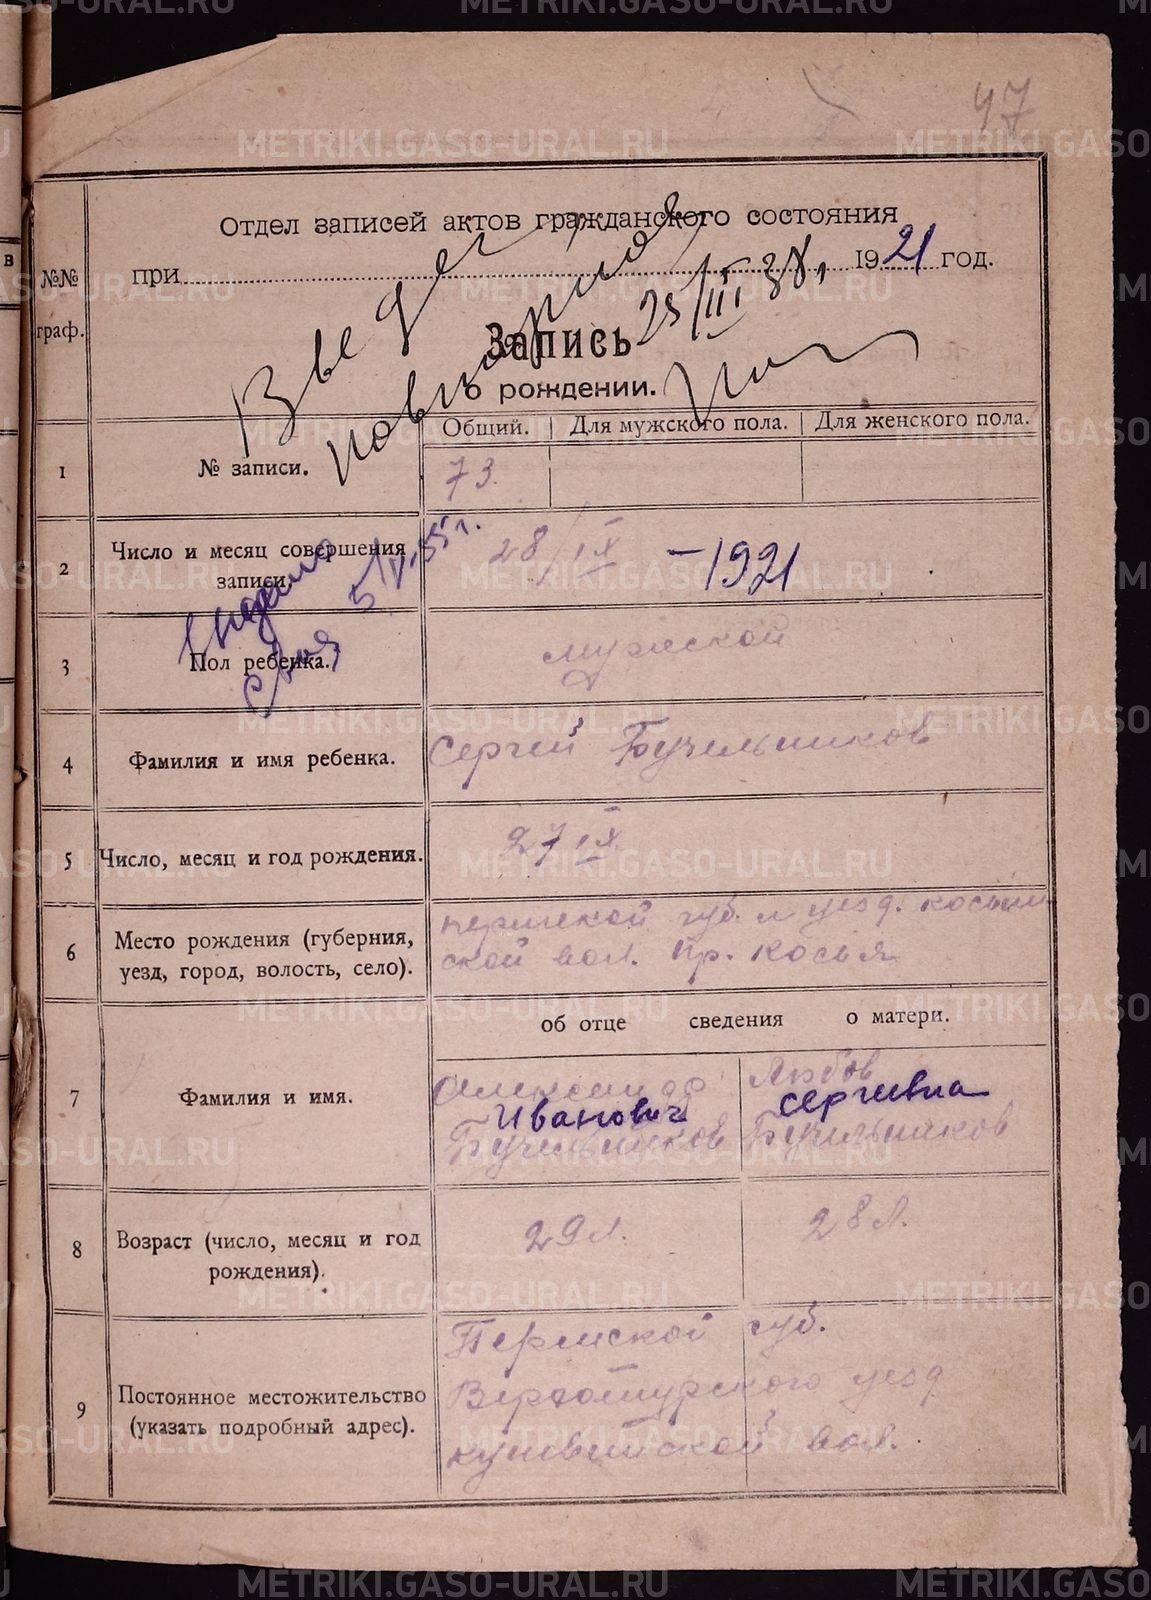 47
Отдел записей актов гражданского состояния
при 1921 год.
№№ граф.
Запись
о рождении.
Выдет повторное 25/III 38.
Общий. Для мужского пола. Для женского пола.
1 № записи. 73.
2 Число и месяц совершения записи. 28/IX –1921
5/V-55 г.
3 Пол ребенка. мужской
4 Фамилия и имя ребенка. Сергей Бучельников
5 Число, месяц и год рождения. 27 IX
6 Место рождения (губерния, уезд, город, волость, село).
пермской губ. и уезд. косьин
ской вол. пр. Косья
об отце сведения о матери.
7 Фамилия и имя.
Александр Любов
Иванович сергевна
Бучельников Бучельников
8 Возраст (число, месяц и год рождения). 29 л. 28 л.
9 Постоянное местожительство (указать подробный адрес).
Пермской губ.
Верхотурского уезд
кушвинской вол.
METRIKI.GASO-URAL.RU